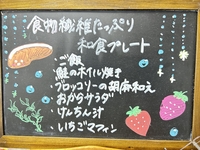 食物繊維たっぷり
和食プレート
・ご飯
・鮭のホイル焼き
・ブロッコリーの胡麻和え
・おからサラダ
・けんちん汁
・いちごマフィン